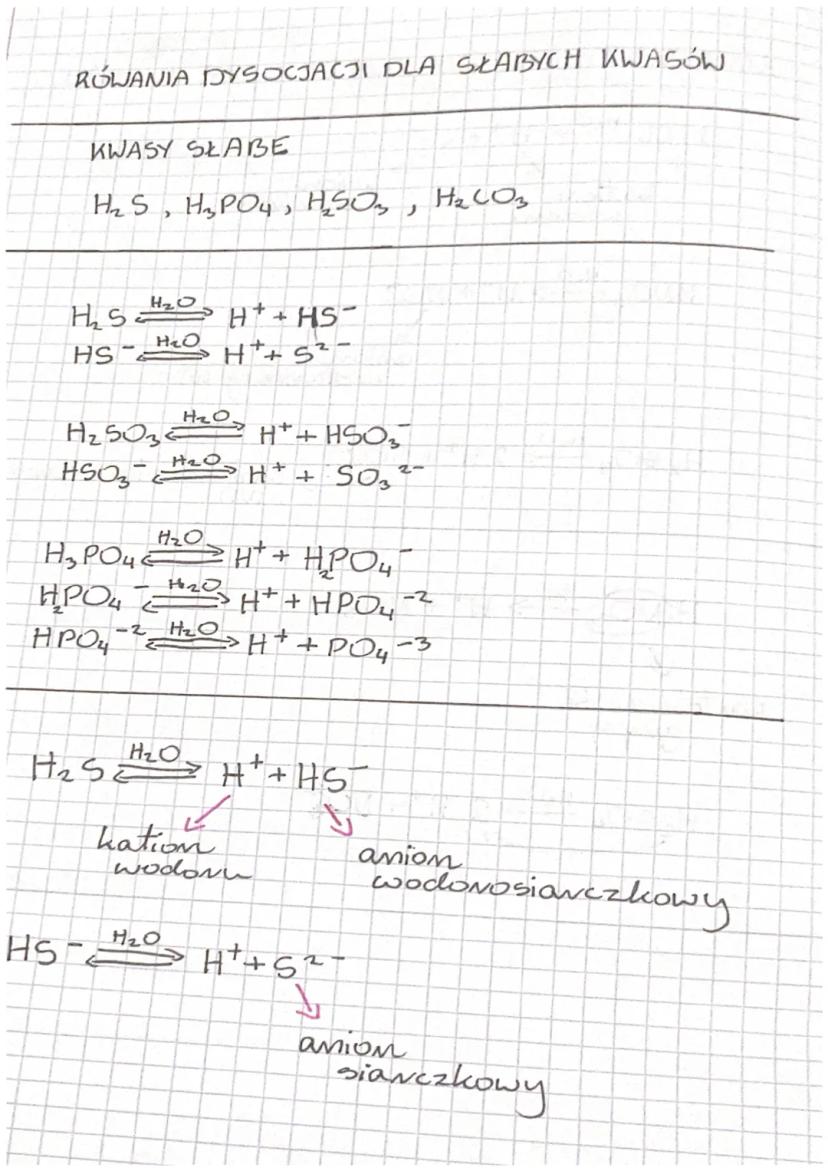 RÓWANIA DYSOCJACJI DLA SŁABYCH KWASÓW
KWASY SŁABE
H₂S, H₃PO₄, H₂SO₃, H₂CO₃
H₂S ⇌ (H₂O) H⁺ + HS⁻
HS⁻ ⇌ (H₂O) H⁺ + S²⁻
H₂SO₃ ⇌ (H₂O) H⁺ + HSO₃⁻
HSO₃⁻ ⇌ (H₂O) H⁺ + SO₃²⁻
H₃PO₄ ⇌ (H₂O) H⁺ + H₂PO₄⁻
H₂PO₄⁻ ⇌ (H₂O) H⁺ + HPO₄⁻²
HPO₄⁻² ⇌ (H₂O) H⁺ + PO₄⁻³
H₂S ⇌ (H₂O) H⁺ + HS⁻
kation wodoru
anion wodorosiarczkowy
HS⁻ ⇌ (H₂O) H⁺ + S²⁻
anion
siarczkowy